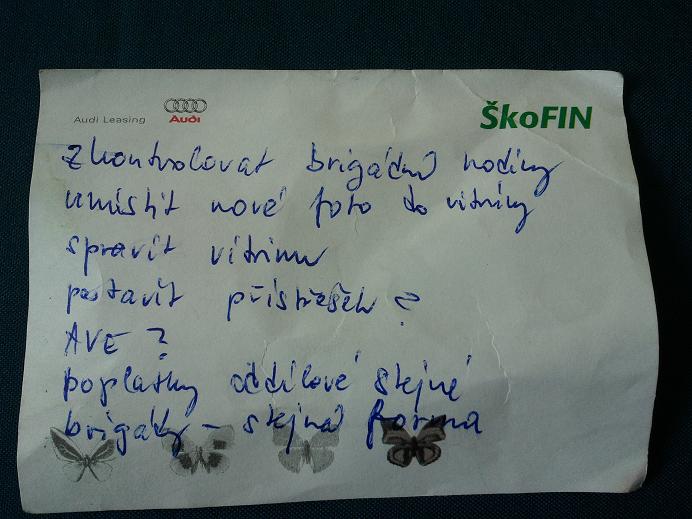 Audi Leasing Audi ŠkoFIN
zkontrolovat brigádní hodiny
umístit nové foto do vitríny
spravit vitrinu
postavit přístřešek ?
AVE ?
poplatky oddílové stejné
brigády - stejná forma